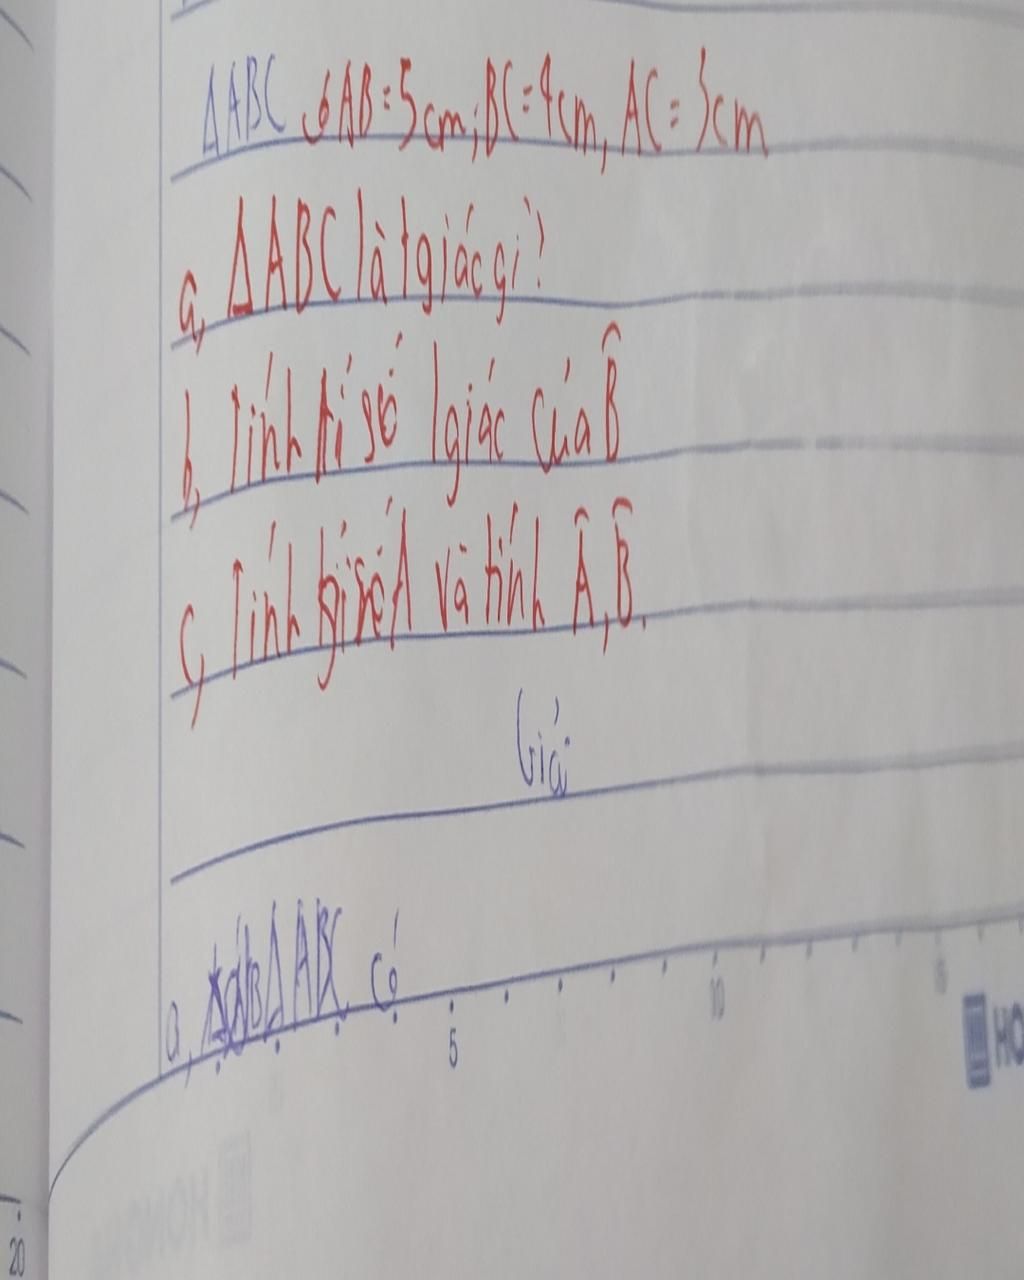 ΔABC có AB = 5cm; BC = 4cm, AC = 3cm
a, ΔABC là tgiác gì?
b, Tính tỉ số lgiác của B̂
c, Tính tỉ số A và tính Â, B̂.
Giải
a, ΔABC có
5
10
15
HO
20